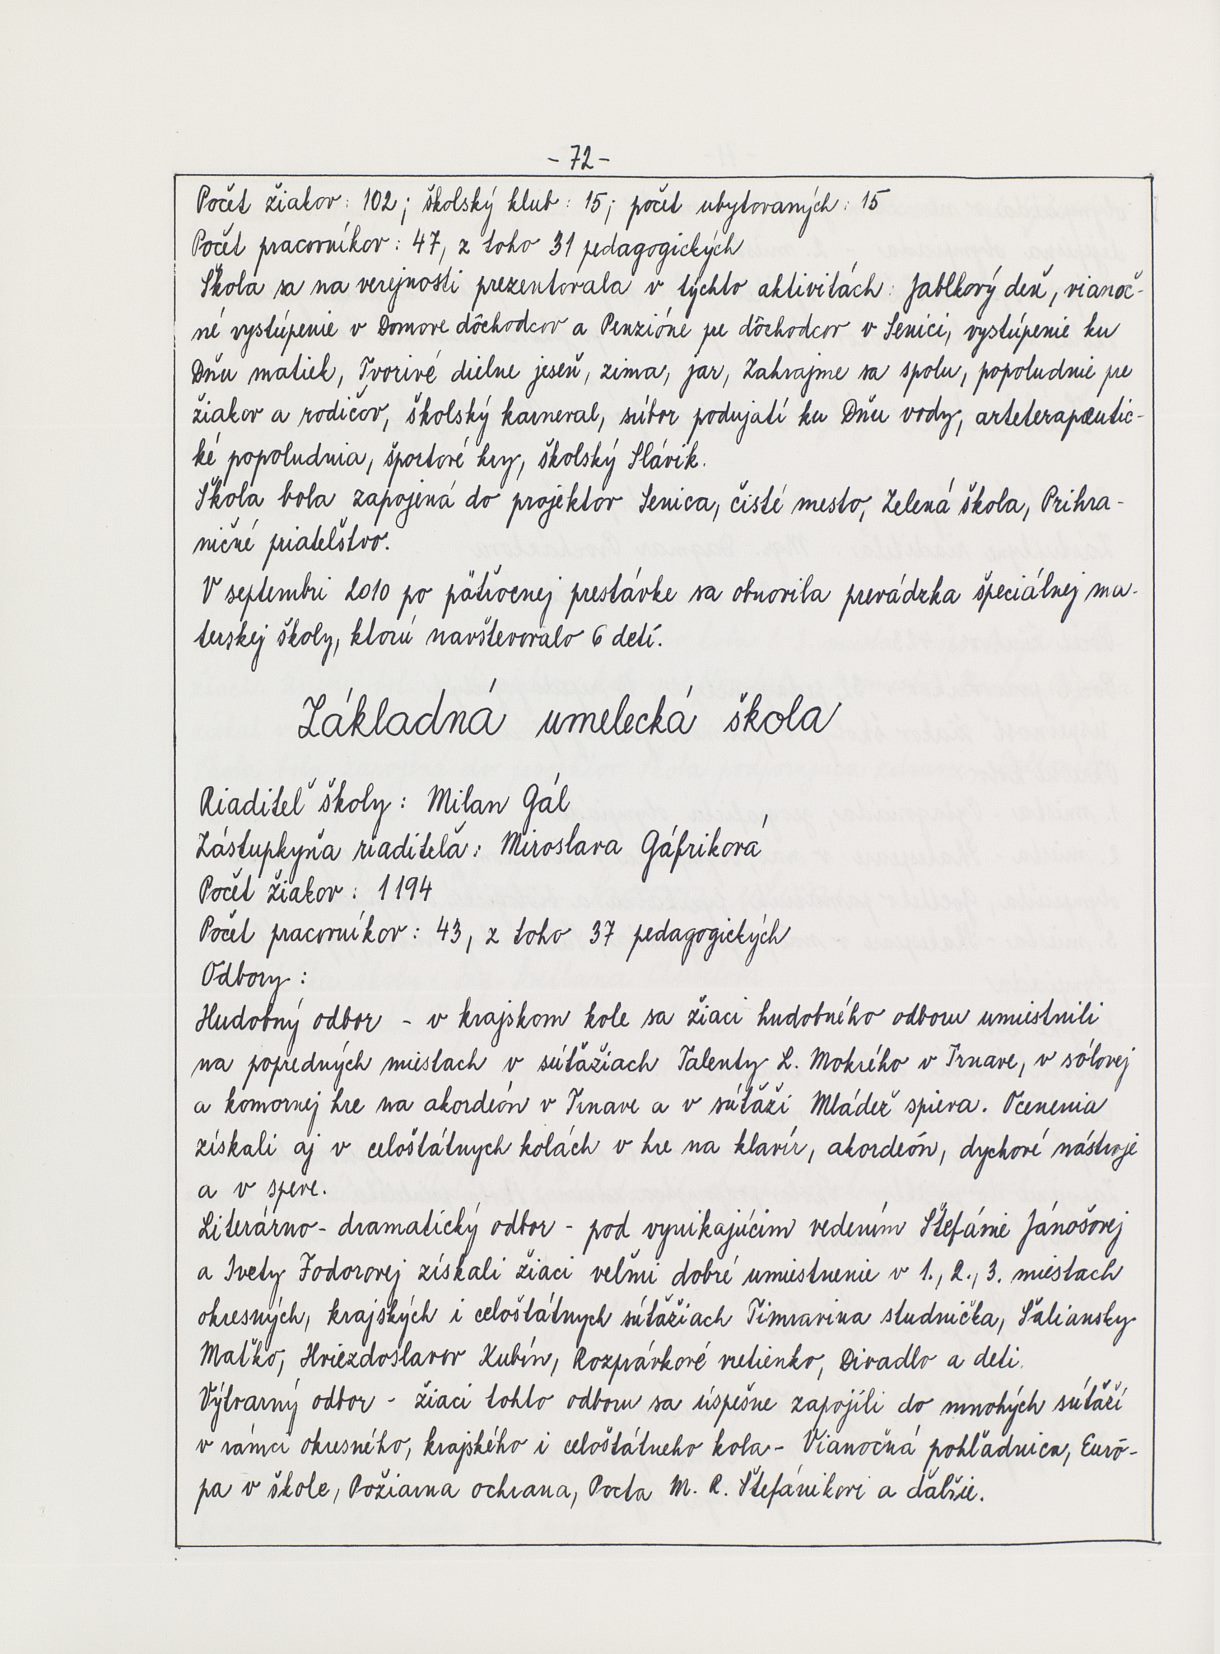 - 72 -
Počet žiakov: 102; školský klub: 15; počet ubytovaných: 15
Počet pracovníkov: 47, z toho 31 pedagogických
Škola sa na verejnosti prezentovala v týchto aktivitách: Jablkový deň, vianoč-
né vystúpenie v Domove dôchodcov a Penzióne pe dôchodcov v Senici, vystúpenie ku
Dňu matiek, Tvorivé dielne jeseň, zima, jar, Zahrajme sa spolu, popoludnie pe
žiakov a rodičov, školský karneval, súbor podujatí ku Dňu vody, arteterapeutic-
ké popoludnia, športové hry, školský Slávik.
Škola bola zapojená do projektov Senica, čisté mesto, Zelená škola, Prihra-
ničné priateľstvo.
V septembri 2010 po päťročnej prestávke sa obnovila prevádzka špeciálnej ma-
terskej školy, ktorú navštevovalo 6 detí.
Základná umelecká škola
Riaditeľ školy: Milan Gál
Zástupkyňa riaditeľa: Miroslava Gáfriková
Počet žiakov: 1194
Počet pracovníkov: 43, z toho 37 pedagogických
Odbory:
Hudobný odbor - v krajskom kole sa žiaci hudobného odboru umiestnili
na popredných miestach v súťažiach Talenty L. Mokrého v Trnave, v sólovej
a komornej hre na akordeón v Trnave a v súťaži Mládež spieva. Ocenenia
získali aj v celoštátnych kolách v hre na klavír, akordeón, dychové nástroje
a v speve.
Literárno - dramatický odbor - pod vynikajúcim vedením Štefánie Jánošovej
a Ivety Fodorovej získali žiaci veľmi dobré umiestnenie v 1., 2., 3. miestach
okresných, krajských i celoštátnych súťažiach Timravina studnička, Šaliansky
Maťko, Hviezdoslavov Kubín, Rozprávkové vretienko, Divadlo a deti.
Výtvarný odbor - žiaci tohto odboru sa úspešne zapojili do mnohých súťaží
v rámci okresného, krajského i celoštátneho kola - Vianočná pohľadnica, Euró-
pa v škole, Požiarna ochrana, Pocta M. R. Štefánikovi a ďalšie.